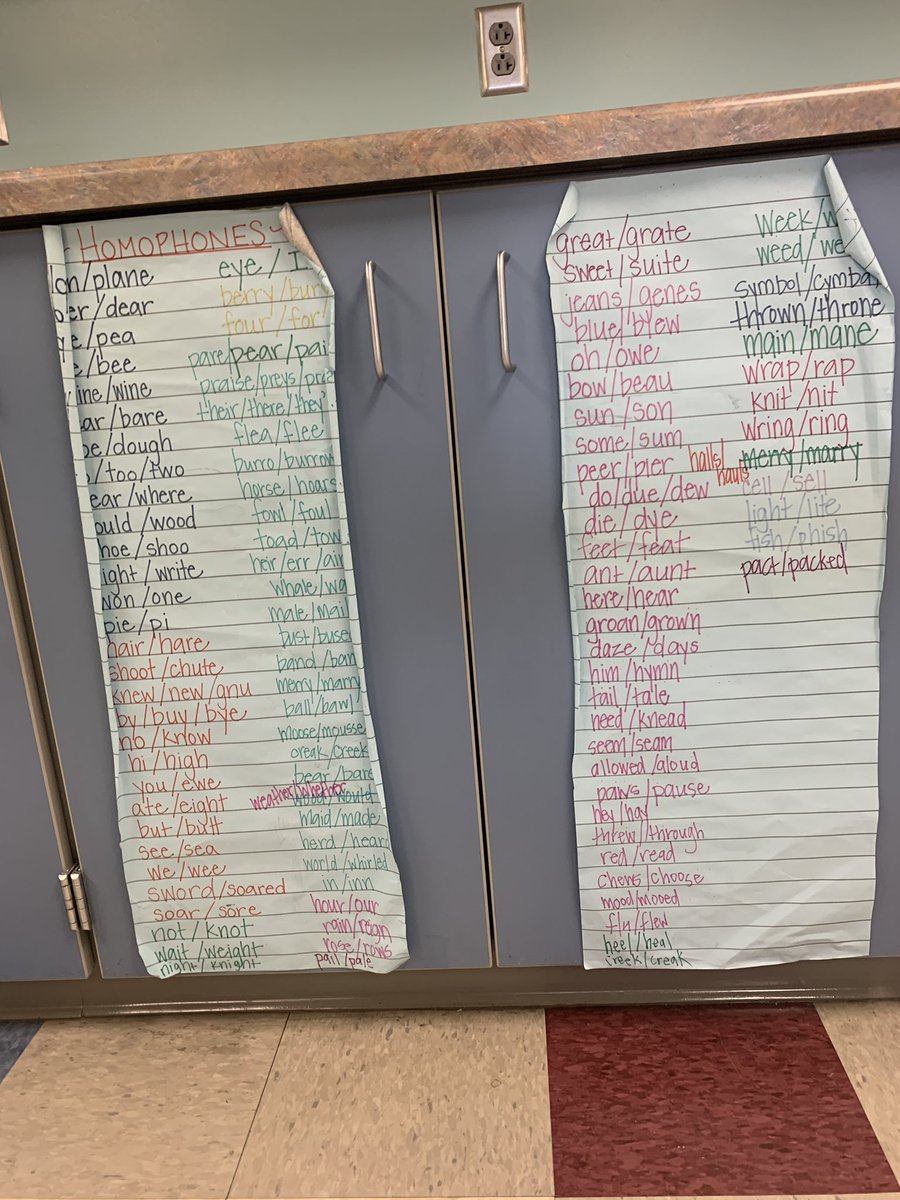 HOMOPHONES
on/plane
er/dear
e/pea
e/bee
ine/wine
ar/bare
oe/dough
/too/two
ear/where
ould/wood
hoe/shoo
ight/write
won/one
pie/pi
hair/hare
shoot/chute
knew/new/gnu
by/buy/bye
no/know
hi/high
you/ewe
ate/eight
but/butt
see/sea
we/wee
sword/soared
soar/sore
not/knot
wait/weight
night/knight
eye/I
berry/bur
four/for
pare/pear/pai
praise/preys/pra
their/there/they'
flea/flee
burro/burrow
horse/hoars
fowl/foul
toad/tow
heir/err/air
whale/wa
male/mail
bust/busse
band/ban
merry/marry
ball/bawl
moose/mousse
creak/creek
bear/bare
weather/whether
wood/would
maid/made
herd/heard
world/whirled
in/inn
hour/our
rain/reign
rose/rows
pail/pale
great/grate
sweet/suite
jeans/genes
blue/blew
oh/owe
bow/beau
sun/son
some/sum
peer/pier
do/due/dew
die/dye
feet/feat
ant/aunt
here/hear
groan/grown
daze/days
him/hymn
tail/tale
need/knead
seem/seam
allowed/aloud
paws/pause
hey/hay
threw/through
red/read
chews/choose
mood/mooed
flu/flew
heel/heal
creek/creak
week/w
weed/we
symbol/cymba
thrown/throne
main/mane
wrap/rap
knit/nit
wring/ring
halls/
hauls
merry/marry
cell/sell
light/lite
fish/phish
pact/packed